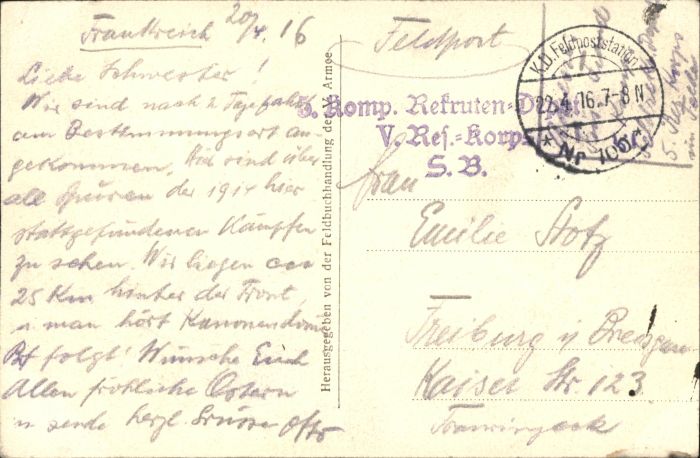 Frankreich 20/4. 16
Liebe Schwester!
Wir sind nach 2 Tagefahrt
am Bestimmungsort an-
gekommen. Hier sind über
all Spuren der 1914 hier
stattgefundenen Kämpfen
zu sehen. Wir liegen ca
25 Km hinter der Front,
u man hört Kanonendonner
Bf folgt! Wünsche Euch
Allen fröhliche Ostern
u sende herzl. Grüsse Otto
Herausgegeben von der Feldbuchhandlung der V. Armee
Feldpost
K.D. Feldpoststation
22.4.16.7-8 N
* Nr 106
Komp. Rekruten-Depot
V. Res.-Korps
S. B.
Frau
Emilie Stotz
Freiburg i/ Breisgau
Kaiser Str. 123